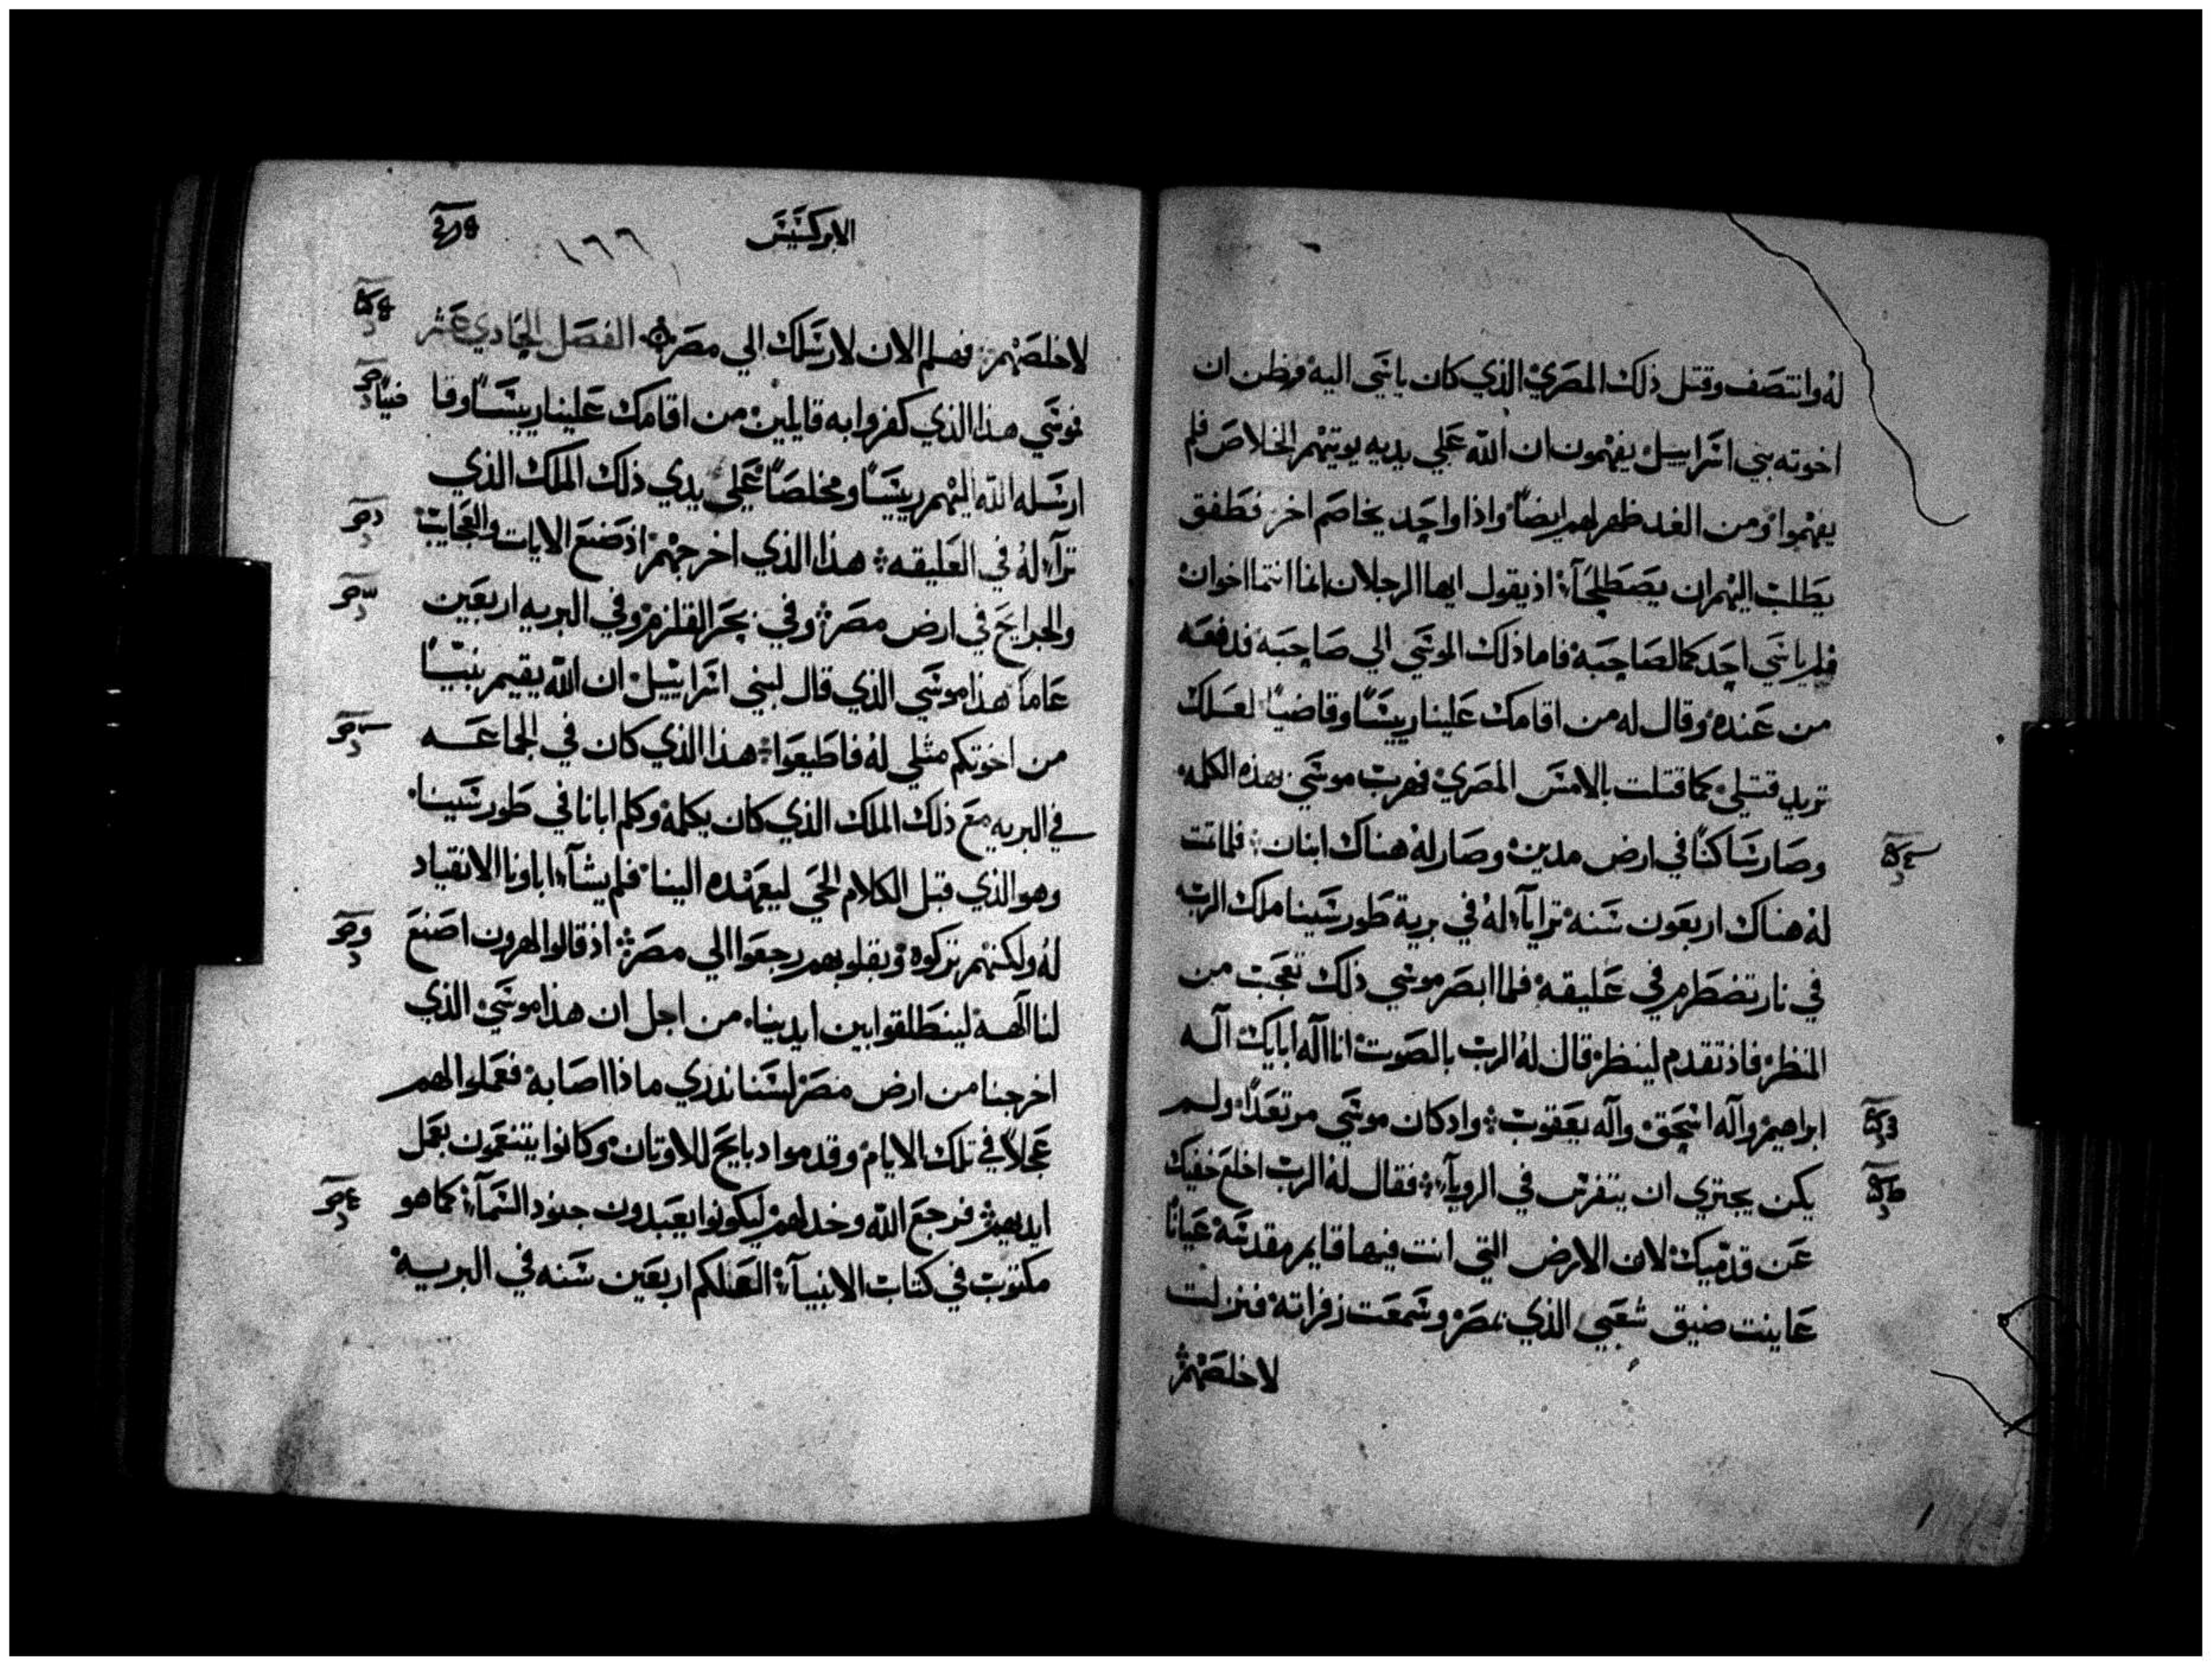 له وانتصف وقتل ذلك المصري الذي كان ياسي اليه فظن ان
اخوته بني اسراييل يفهمون ان الله علي يديه يوتيهم الخلاص فلم
يفهموا ومن الغد ظهر لهم ايضاً واذا واحد يخاصم اخر فطفق
يطلب اليهم ان يصطلحآ اذ يقول ايها الرجلان انما انتما اخوان
فلم ياسي احدكما لصاحبه فاما ذلك الموسي الي صاحبه فدفعه
من عنده وقال له من اقامك علينا رييسًا وقاضيًا لعلك
تريد قتلي كما قتلت بالامس المصري فهرب موسي بهذه الكلمه
وصار ساكنًا في ارض مدين وصار له هناك ابنان فلما تمت
له هناك اربعون سنه ترايآ له في برية طور سينا ملك الرب
في نار تضطرم في عليقه فلما ابصر موسي ذلك تعجب من
المنظر فاذ تقدم لينظر قال له الرب بالصوت انا اله ابايك اله
ابراهيم واله اسحق واله يعقوب واد كان موسي مرتعدًا ولم
يكن يجتري ان يتفرس في الرويآ فقال له الرب اخلع خفيك
عن قدميك لان الارض التي انت فيها قايم مقدسه عيانًا
عاينت ضيق شعبي الذي بمصر وسمعت زفراته فنزلت
لاخلصهم
الابركسيس
١٦٦
لاخلصهم فهلم الان لارسلك الي مصر الفصل الحادي عشر
فموسي هذا الذي كفروا به قايلين من اقامك علينا رييسًا وقا ضيًا
ارسله الله اليهم رييسًا ومخلصًا علي يدي ذلك الملك الذي
ترآ له في العليقه هذا الذي اخرجهم اذ صنع الايات والعجايب
والجرايح في ارض مصر وفي بحر القلزم وفي البريه اربعين
عاما هذا موسي الذي قال لبني اسراييل ان الله يقيم نبيًا
من اخوتكم مثلي له فاطيعوا هذا الذي كان في الجماعه
في البريه مع ذلك الملك الذي كان يكلمه وكلم ابانا في طور سينا
وهو الذي قبل الكلام الحي ليعهده الينا فلم يشآ اباونا الانقياد
له ولكنهم تركوه وبقلوبهم رجعوا الي مصر اذ قالوا لهرون اصنع
لنا الهه لينطلقوا بين ايدينا من اجل ان هذا موسي الذي
اخرجنا من ارض مصر لسنا ندري ماذا اصابه فعملوا لهم
عجلاً في تلك الايام وقدموا دبايح للاوتان وكانوا يتنعمون بعمل
ايديهم فرجع الله وخدلهم ليكونوا يعبدون جنود السمآ كما هو
مكتوب في كتاب الانبيآ العلكم اربعين سنه في البريه